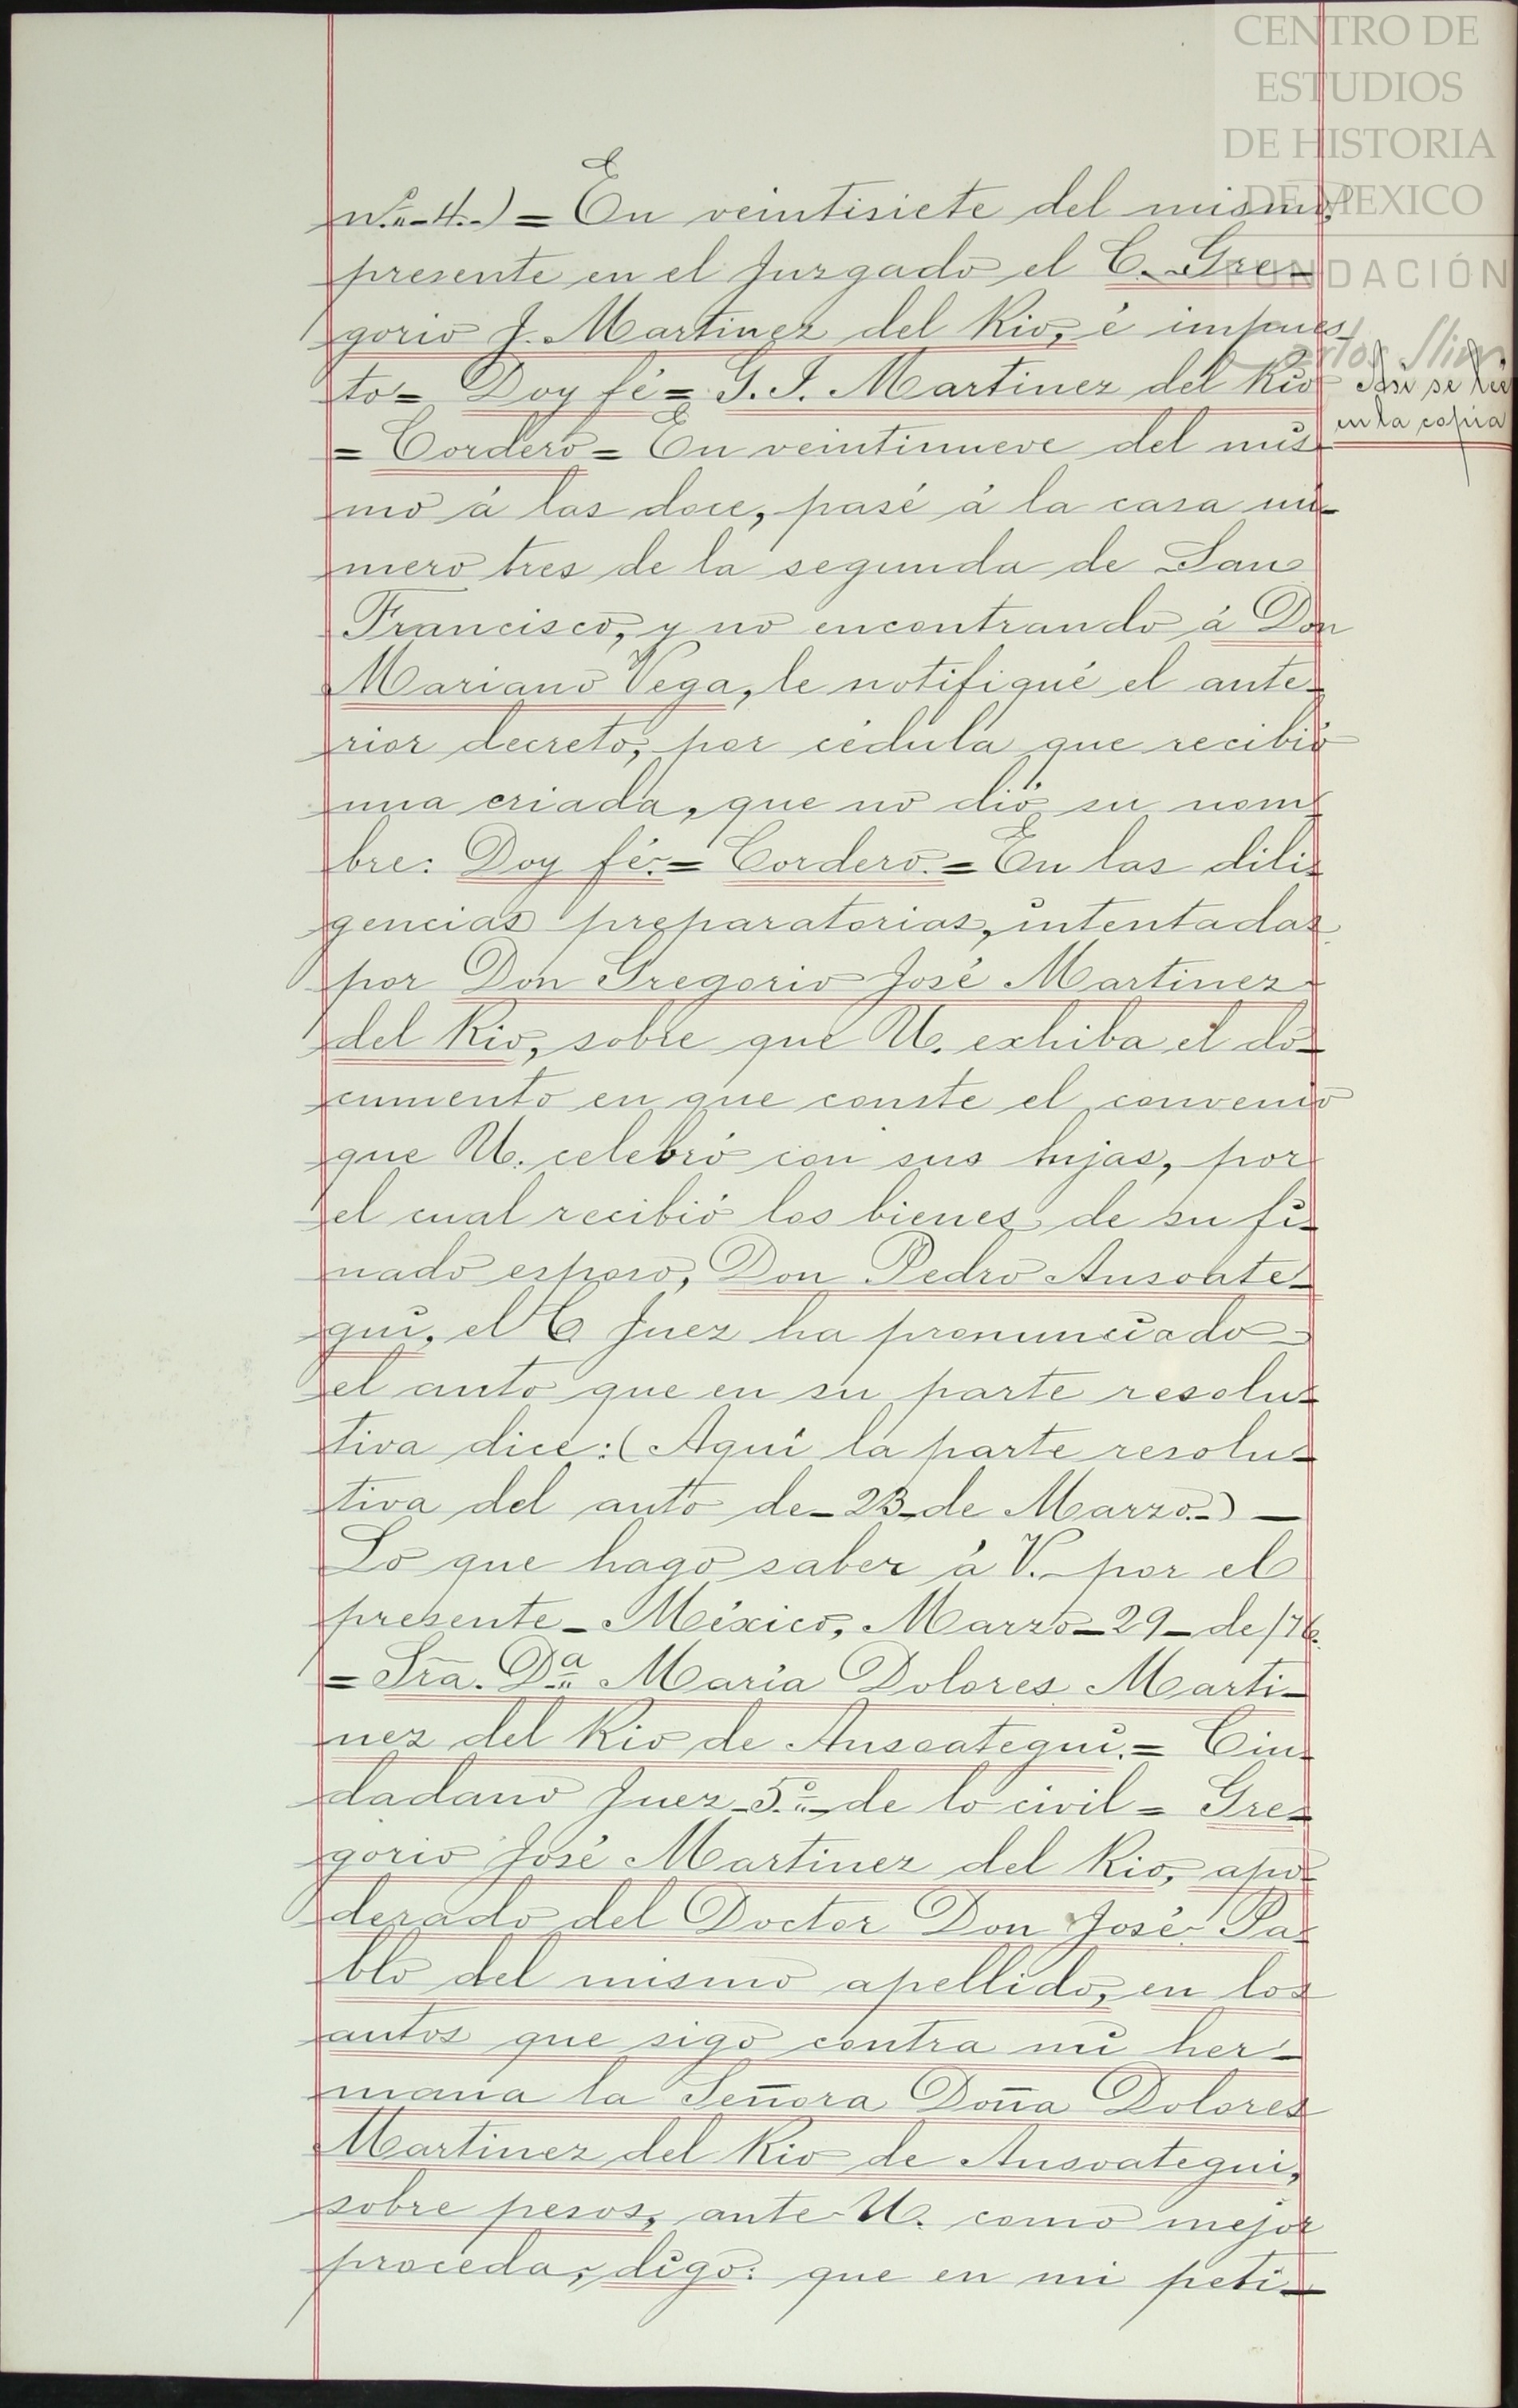 CENTRO DE
ESTUDIOS
DE HISTORIA
DE MEXICO
FUNDACIÓN
Carlos Slim
nº.-4.-) = En veintisiete del mismo,
presente en el Juzgado el C. Gre-
gorio J. Martinez del Rio, é impues
to= Doy fé= G. J. Martinez del Rio
Asi se lee
en la copia
= Cordero = En veintinueve del mis-
mo á las doce, pasé á la casa nú-
mero tres de la segunda de San
Francisco, y no encontrando á Don
Mariano Vega, le notifiqué el ante-
rior decreto, por cédula que recibió
una criada, que no dió su nom-
bre: Doy fé.= Cordero.= En las dili-
gencias preparatorias, intentadas
por Don Gregorio José Martinez
del Rio, sobre que U. exhiba el do-
cumento en que conste el convenio
que U. celebró con sus hijas, por
el cual recibió los bienes de su fi-
nado esposo, Don Pedro Ansoate-
gui, el C Juez ha pronunciado
el auto que en su parte resolu-
tiva dice: (Aquí la parte resolu-
tiva del auto de-23-de Marzo.-) —
Lo que hago saber á V. por el
presente - México, Marzo-29-de/76.
= Sra. Dª María Dolores Marti-
nez del Rio de Ansoategui.= Ciu-
dadano Juez-5º-de lo civil = Gre-
gorio José Martinez del Rio, apo-
derado del Doctor Don José Pa-
blo del mismo apellido, en los
autos que sigo contra mi her-
mana la Señora Doña Dolores
Martinez del Rio de Ansoategui,
sobre pesos, ante U. como mejor
proceda, digo: que en mi peti-